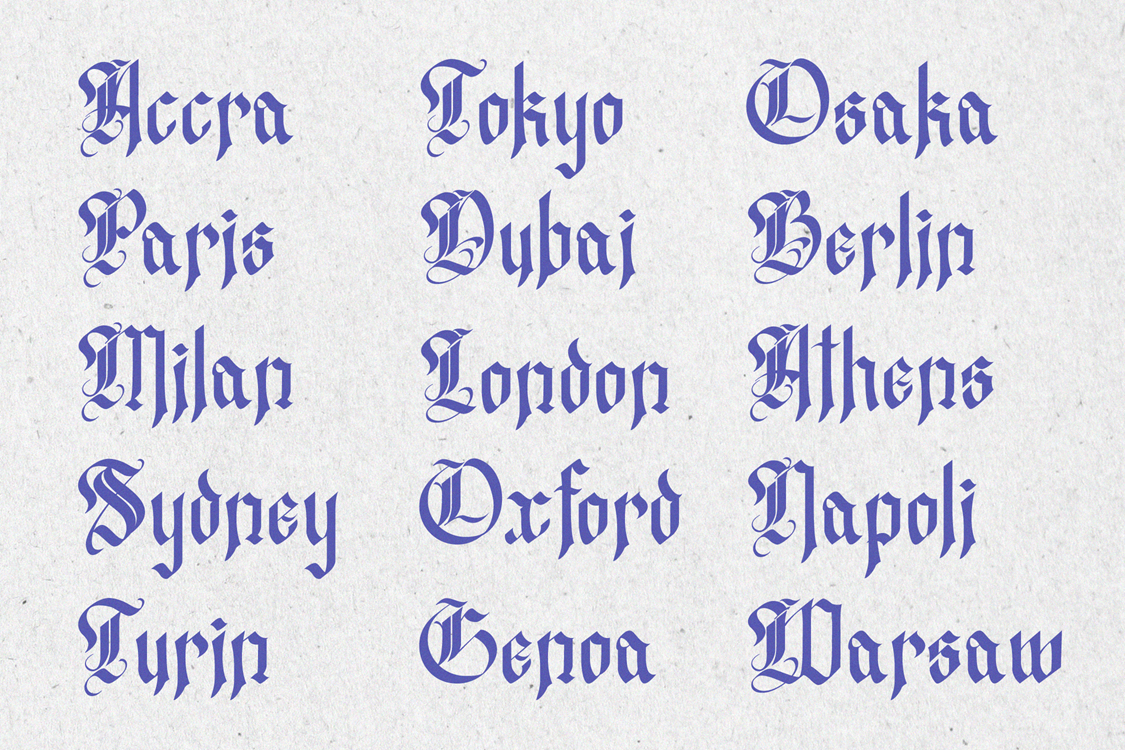 Accra Tokyo Osaka
Paris Dubai Berlin
Milan London Athens
Sydney Oxford Napoli
Turin Genoa Warsaw